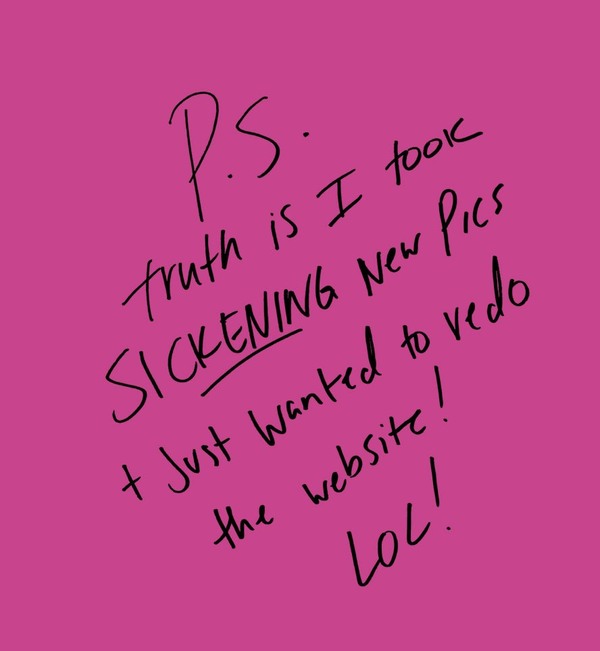 P.S.
truth is I took
SICKENING New Pics
+ Just wanted to redo
the website!
LOL!